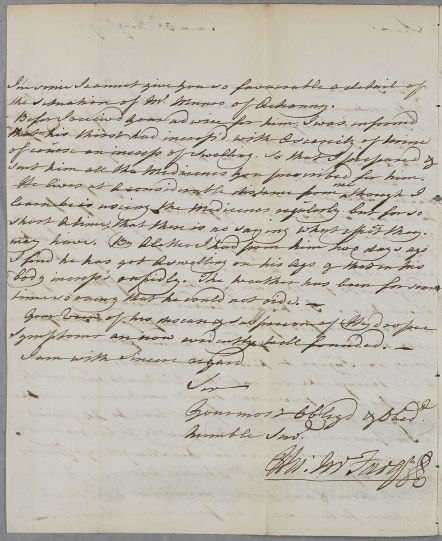 I'm sorrie I cannot give you so favourable a detail of
the Situation of Mr. Munro of
Before I received your advice for him, I was informed
that his thirst had increas'd with a scarcity of Urine
of course an increase of Swelling. So that I prepared &
sent him all the Medicines you prescribed for him.
He lives at a considerable distance from me, though I
learn he is using the Medicines regularly but for so
short a time, that there is no saying what effect they
may have. By a Letter I had from him two days ago
I find he has got a swelling in his legs & that in his
body increas'd rapidly. The weather has been for some
time so rainy that he could not ride. —
Your of his disease & suspicion of Hydropic
Symptoms are now evidently well founded. —
I am with Sincere regard
Sir
Your most Obliged & Obedt.
humble Servt.